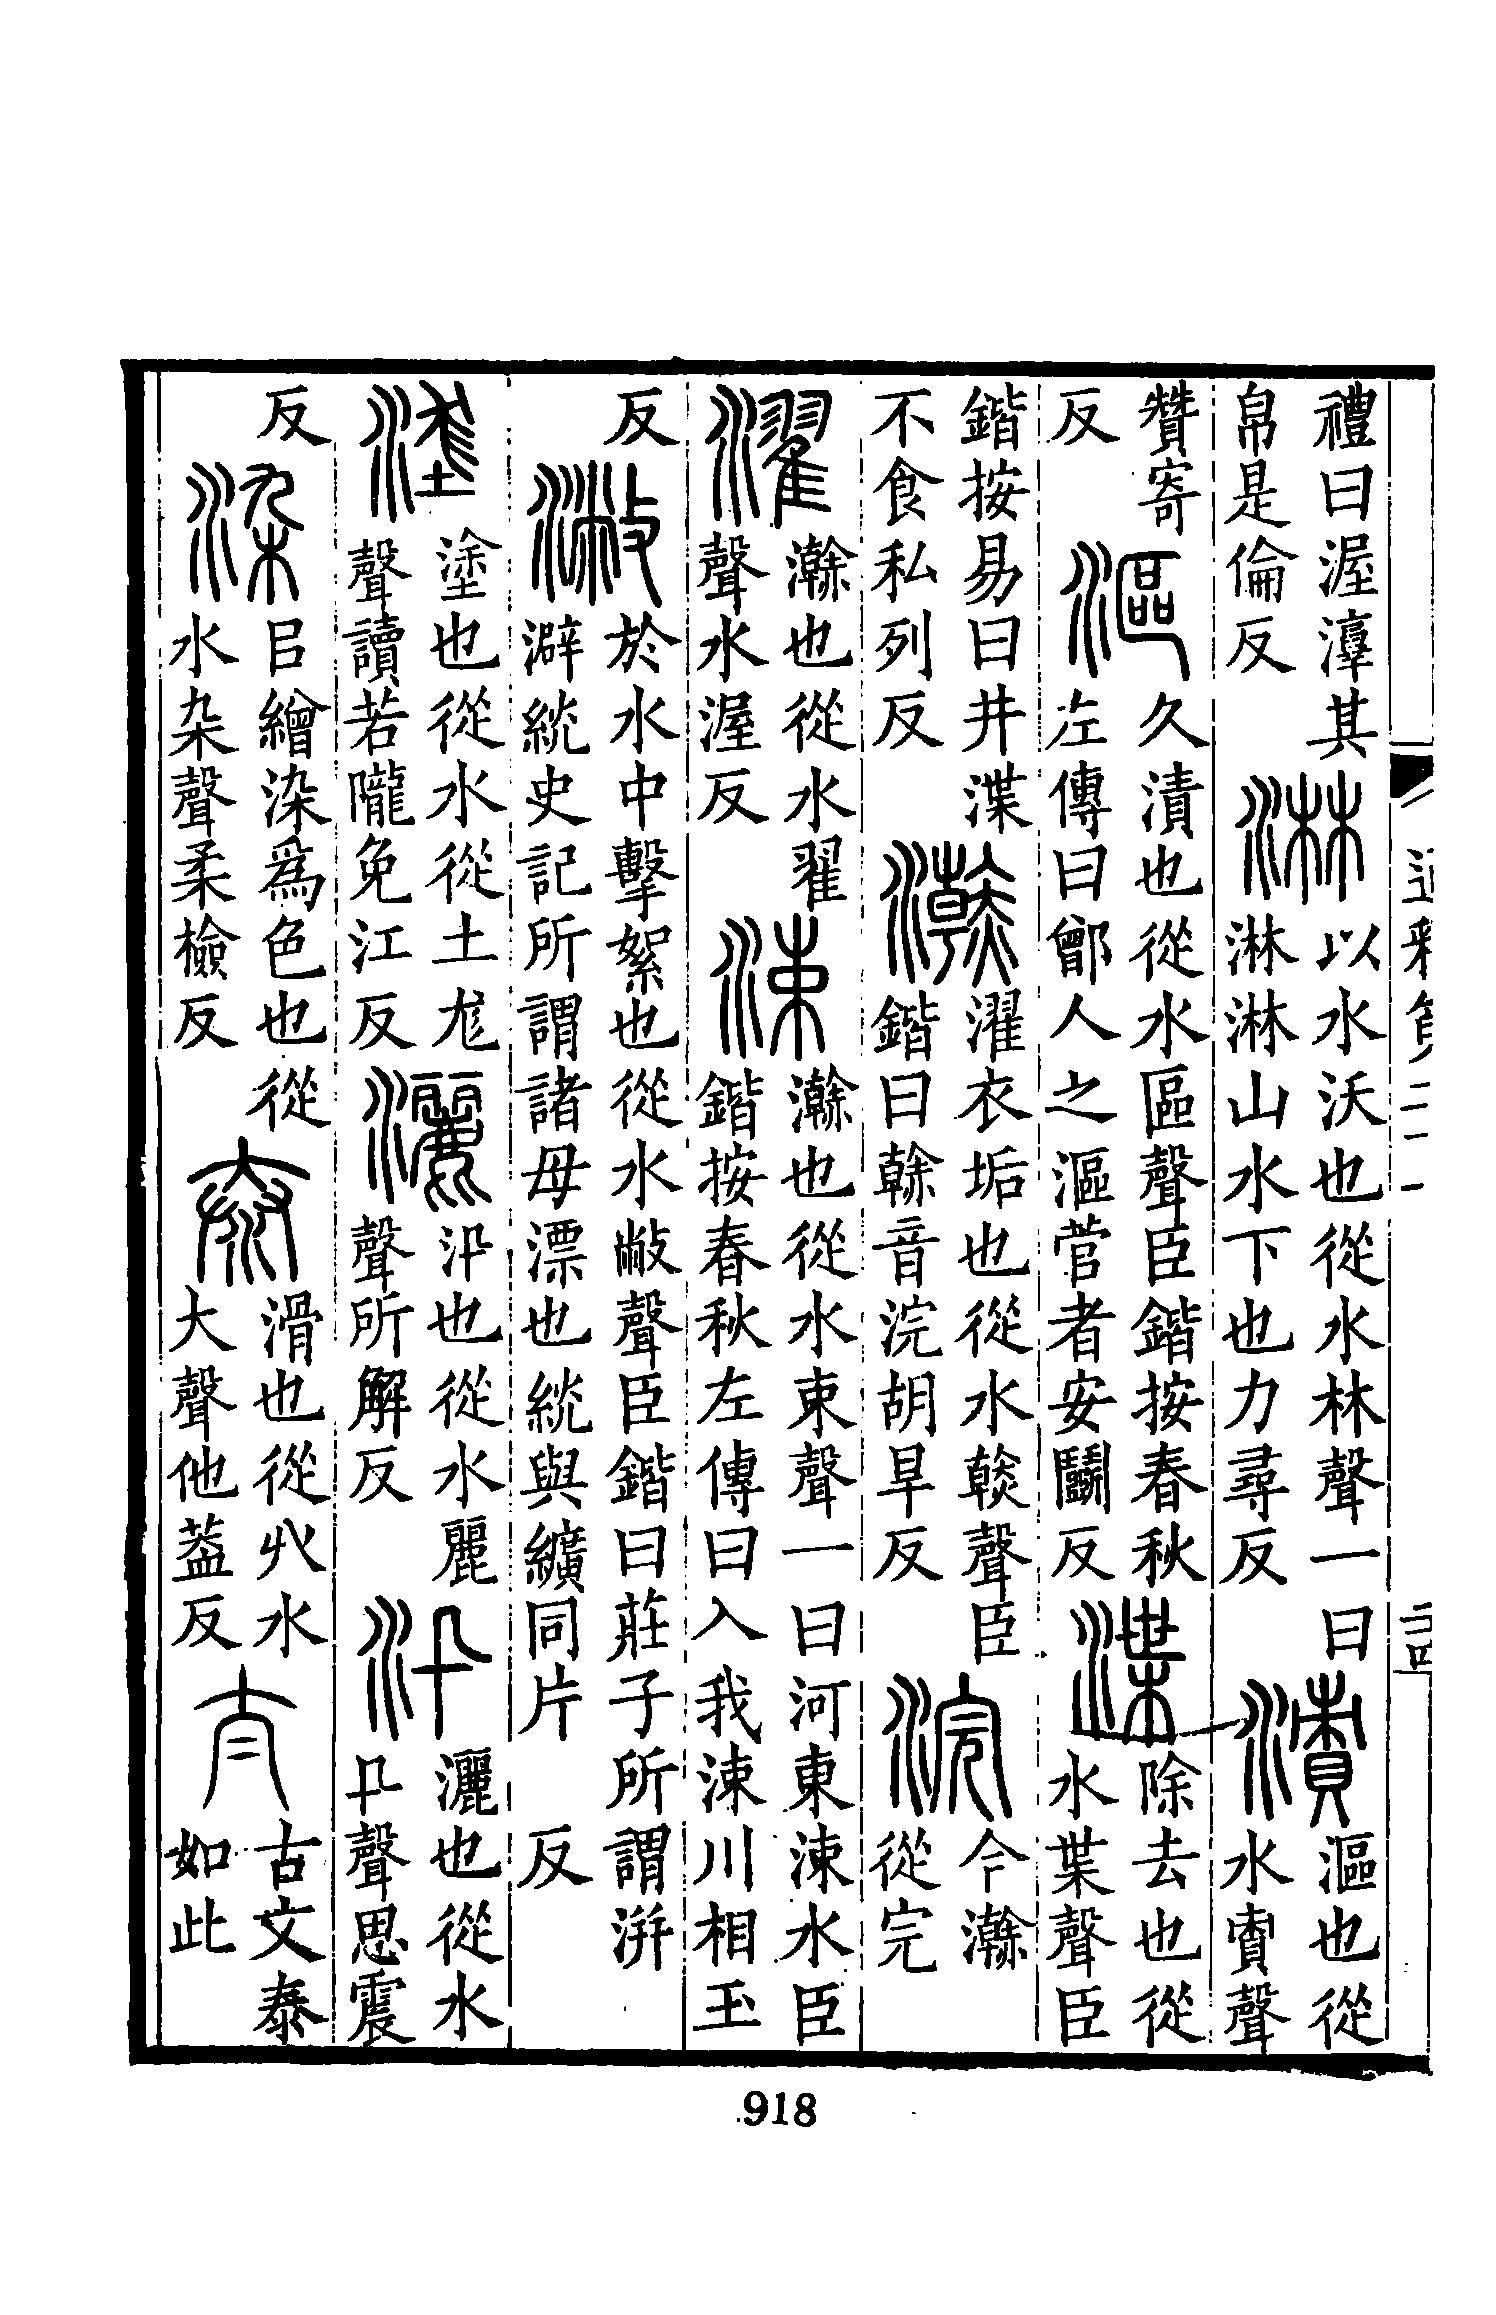 禮曰渥淳其
帛是倫反
淋
以水沃也從水林聲一曰
淋淋山水下也力尋反
漬
漚也從
水責聲
贊寄
反
漚
久漬也從水區聲臣鍇按春秋
左傳曰鄫人之漚菅者安鬭反
渫
除去也從
水枼聲臣
鍇按易曰井渫
不食私列反
瀚
濯衣垢也從水𠦝聲臣
鍇曰𠦝音浣胡旱反
浣
今瀚
從完
濯
瀚也從水翟
聲水渥反
涑
瀚也從水束聲一曰河東涑水臣
鍇按春秋左傳曰入我涑川相玉
反
潎
於水中擊絮也從水敝聲臣鍇曰莊子所謂洴
澼絖史記所謂諸母漂也絖與纊同片
反
𡍮
塗也從水從土尨
聲讀若隴免江反
灑
汛也從水麗
聲所解反
汛
灑也從水
卂聲思震
反
染
㠯繒染為色也從
水杂聲柔檢反
泰
滑也從廾水
大聲他葢反
夳
古文泰
如此
通釋第二十一
918